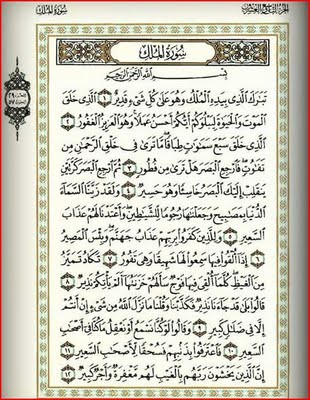 سُورَةُ المُلْكِ
الجُزْءُ التَّاسِعُ وَالعِشْرُونَ
سُورَةُ المُلْكِ
بِسْمِ اللَّهِ الرَّحْمَٰنِ الرَّحِيمِ
تَبَٰرَكَ ٱلَّذِى بِيَدِهِ ٱلْمُلْكُ وَهُوَ عَلَىٰ كُلِّ شَىْءٍ قَدِيرٌ ١ ٱلَّذِى خَلَقَ
ٱلْمَوْتَ وَٱلْحَيَوٰةَ لِيَبْلُوَكُمْ أَيُّكُمْ أَحْسَنُ عَمَلًا وَهُوَ ٱلْعَزِيزُ ٱلْغَفُورُ ٢
ٱلَّذِى خَلَقَ سَبْعَ سَمَٰوَٰتٍ طِبَاقًا مَّا تَرَىٰ فِى خَلْقِ ٱلرَّحْمَٰنِ مِن
تَفَٰوُتٍ فَٱرْجِعِ ٱلْبَصَرَ هَلْ تَرَىٰ مِن فُطُورٍ ٣ ثُمَّ ٱرْجِعِ ٱلْبَصَرَ كَرَّتَيْنِ
يَنقَلِبْ إِلَيْكَ ٱلْبَصَرُ خَاسِئًا وَهُوَ حَسِيرٌ ٤ وَلَقَدْ زَيَّنَّا ٱلسَّمَآءَ
ٱلدُّنْيَا بِمَصَٰبِيحَ وَجَعَلْنَٰهَا رُجُومًا لِّلشَّيَٰطِينِ وَأَعْتَدْنَا لَهُمْ عَذَابَ
ٱلسَّعِيرِ ٥ وَلِلَّذِينَ كَفَرُوا۟ بِرَبِّهِمْ عَذَابُ جَهَنَّمَ وَبِئْسَ ٱلْمَصِيرُ
٦ إِذَآ أُلْقُوا۟ فِيهَا سَمِعُوا۟ لَهَا شَهِيقًا وَهِىَ تَفُورُ ٧ تَكَادُ تَمَيَّزُ
مِنَ ٱلْغَيْظِ كُلَّمَآ أُلْقِىَ فِيهَا فَوْجٌ سَأَلَهُمْ خَزَنَتُهَآ أَلَمْ يَأْتِكُمْ نَذِيرٌ ٨
قَالُوا۟ بَلَىٰ قَدْ جَآءَنَا نَذِيرٌ فَكَذَّبْنَا وَقُلْنَا مَا نَزَّلَ ٱللَّهُ مِن شَىْءٍ إِنْ أَنتُمْ
إِلَّا فِى ضَلَٰلٍ كَبِيرٍ ٩ وَقَالُوا۟ لَوْ كُنَّا نَسْمَعُ أَوْ نَعْقِلُ مَا كُنَّا فِىٓ أَصْحَٰبِ
ٱلسَّعِيرِ ١٠ فَٱعْتَرَفُوا۟ بِذَنۢبِهِمْ فَسُحْقًا لِّأَصْحَٰبِ ٱلسَّعِيرِ ١١
إِنَّ ٱلَّذِينَ يَخْشَوْنَ رَبَّهُم بِٱلْغَيْبِ لَهُم مَّغْفِرَةٌ وَأَجْرٌ كَبِيرٌ ١٢